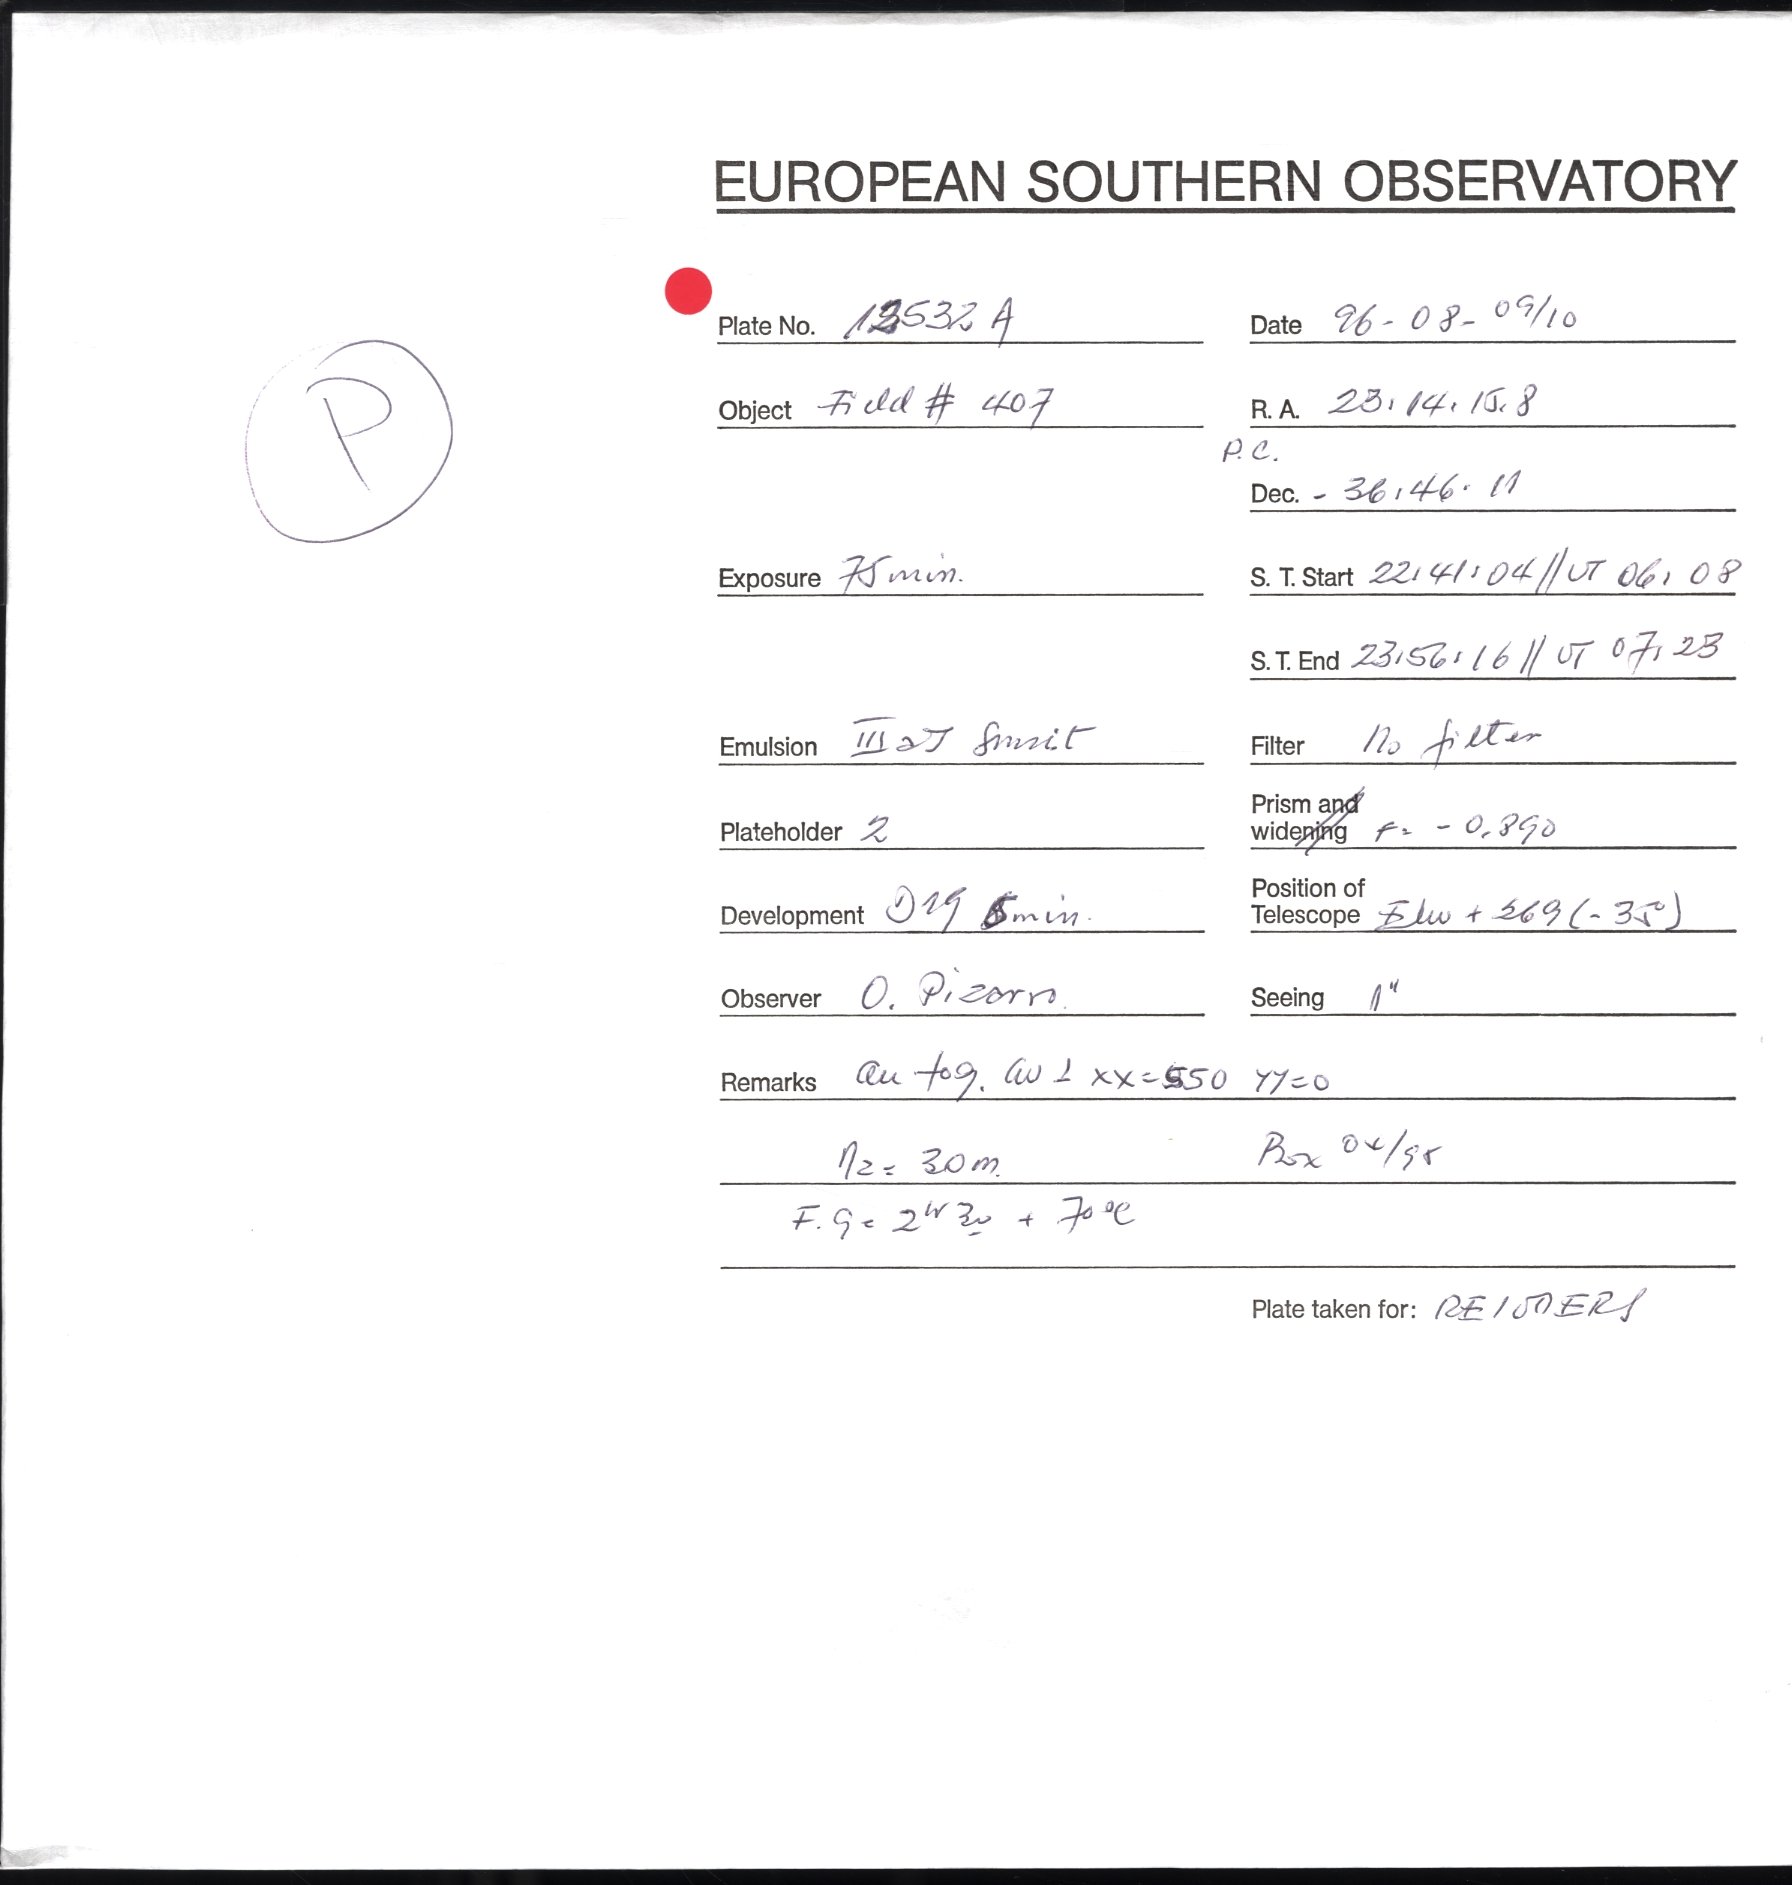 EUROPEAN SOUTHERN OBSERVATORY
Plate No. 13532 A Date 96-08-09/10
P
Object Field # 407 R. A. 23:14:15.8
P.C.
Dec. - 36:46:11
Exposure 75 min. S. T. Start 22:41:04 // UT 06:08
S. T. End 23:56:16 // UT 07:23
Emulsion IIIaJ Filter No filter
Plateholder 2 Prism and widening F= - 0.890
Development D19 5min. Position of Telescope + (-35°)
Observer O. Pizarro. Seeing 1"
Remarks xx=550 yy=0
= 30m. Box 04/95
F.G= + 70°C
Plate taken for: REIMERS